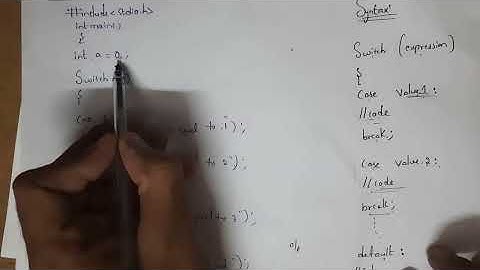 #include<stdio.h>
int main()
{
int a = 2;
Switch
{
Case
ual to 1");
to 2");
to 3");
o/p
Syntax:
Switch (expression)
{
Case value1:
//code
break;
Case value 2:
//code
break;
default: